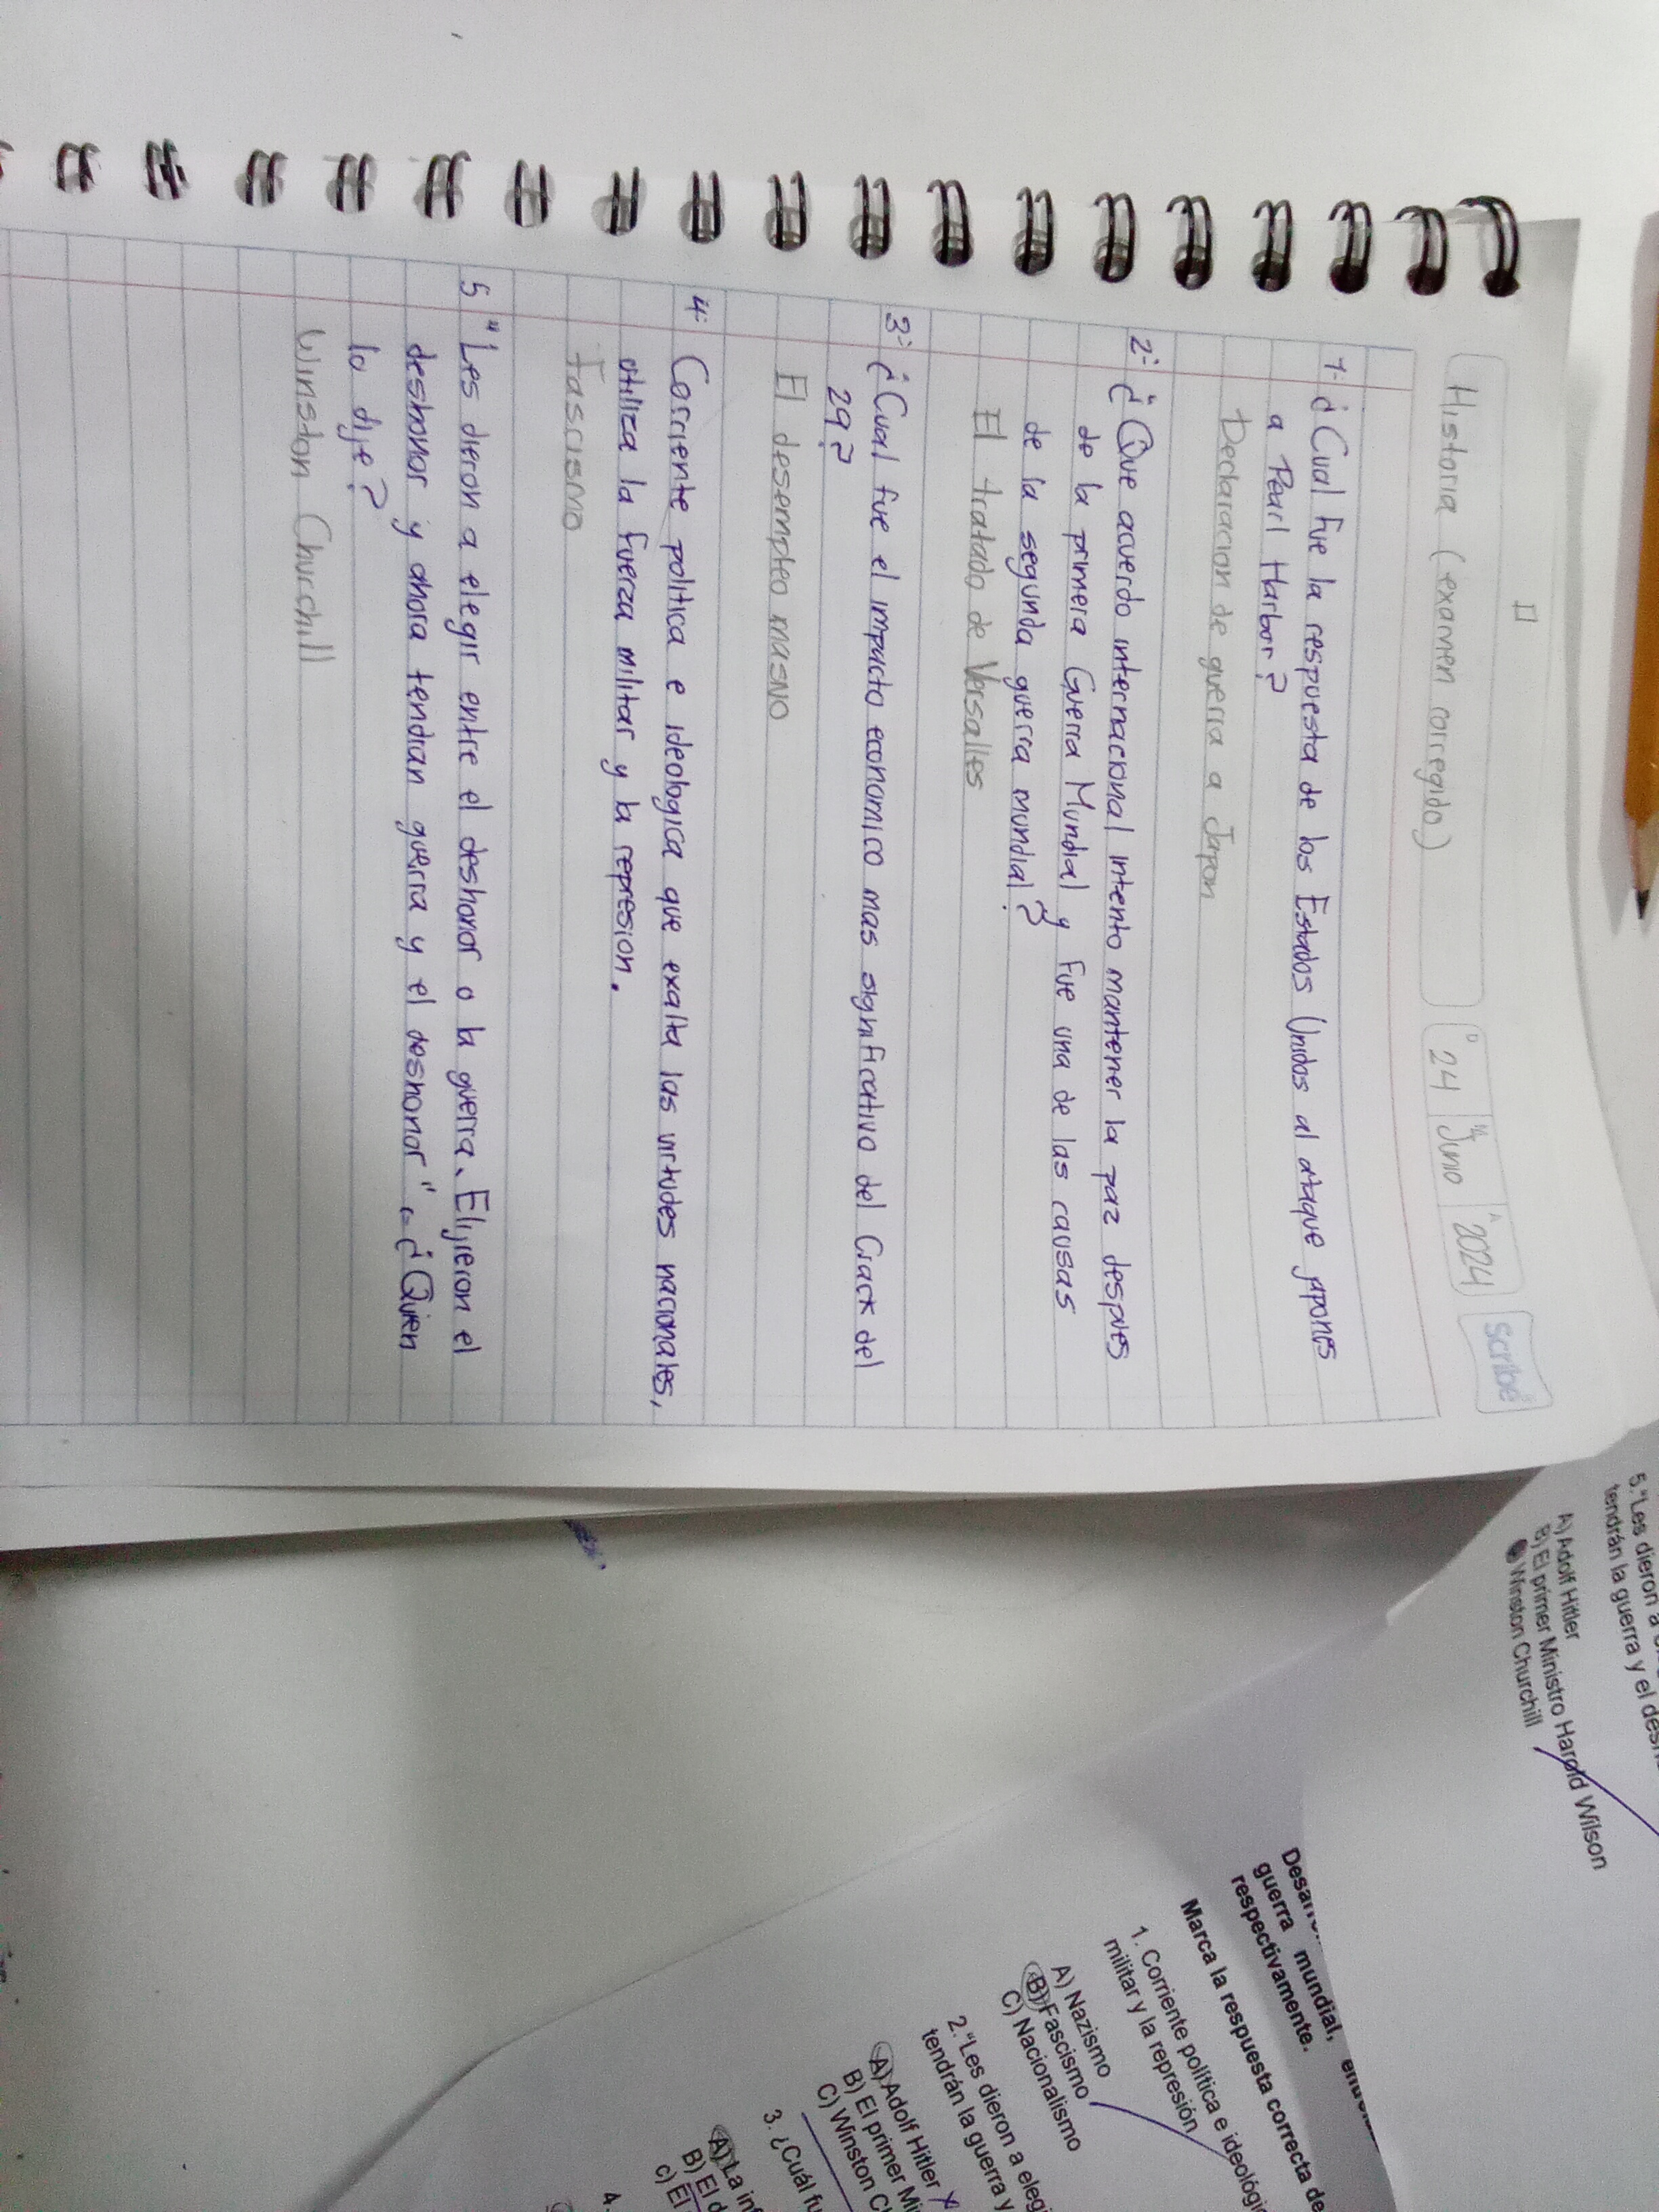 Historia (examen corregido)
D 24 M Junio A 2024 Scribe
1- ¿Cual fue la respuesta de los Estados Unidos al ataque japones
a Pearl Harbor?
Declaracion de guerra a Japon
2- ¿Que acuerdo internacional intento mantener la paz despues
de la primera Guerra Mundial y fue una de las causas
de la segunda guerra mundial?
El tratado de Versalles
3- ¿Cual fue el impacto economico mas significativo del Crack del
29?
El desempleo masivo
4- Corriente politica e ideologica que exalta las virtudes nacionales,
utiliza la fuerza militar y la represion.
Fascismo
5 "Les dieron a elegir entre el deshonor o la guerra. Elijieron el
deshonor y ahora tendran guerra y el deshonor" ¿Quien
lo dije?
Winston Churchill
5."Les dieron a
tendrán la guerra y el
A) Adolf Hitler
B) El primer Ministro Harold Wilson
Winston Churchill
guerra mundial,
respectivamente.
Marca la respuesta correcta de
1. Corriente política e ideológi
militar y la represión
A) Nazismo
B) Fascismo
C) Nacionalismo
2."Les dieron a eleg
tendrán la guerra y
A) Adolf Hitler
B) El primer Mi
C) Winston C
3. ¿Cuál fu
A) La in
B) El d
c) El
4.